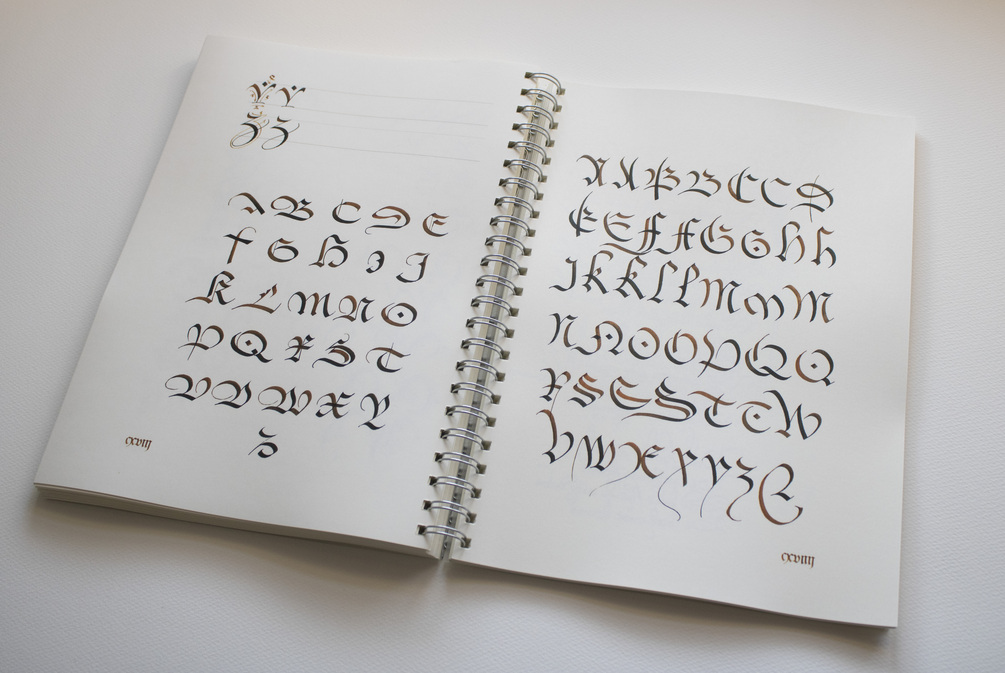 Y Y
Z Z
A B C D E
F G H I J
K L M N O
P Q R S T
U V W X Y
Z
cxviij
A A B B C C D
E E F F G G h h
J K K L L M M M
N N O O P Q Q
R S S S T T W
V W X X Y Z Q
cxviiij